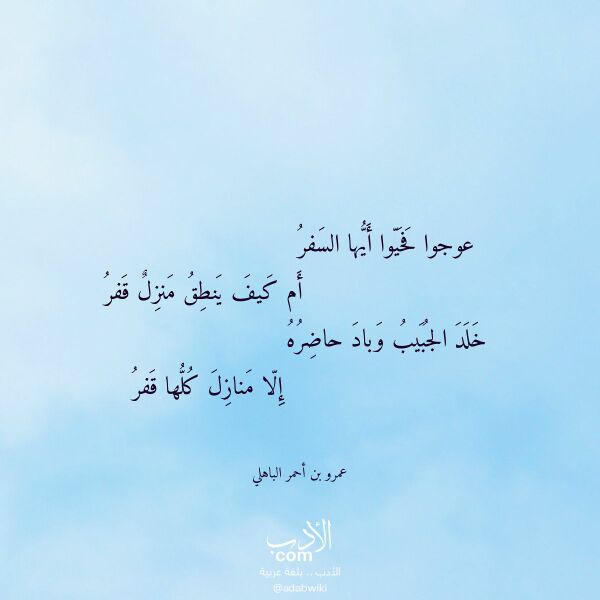 عوجوا فَحَيّوا أَيُّها السَفرُ
أَم كَيفَ يَنطِقُ مَنزِلٌ قَفرُ
خَلَدَ الجُبَيبُ وَبادَ حاضِرُهُ
إِلّا مَنازِلَ كُلُّها قَفرُ
عمرو بن أحمر الباهلي
الأدب
com
الأدب .. بلغة عربية
@adabwiki